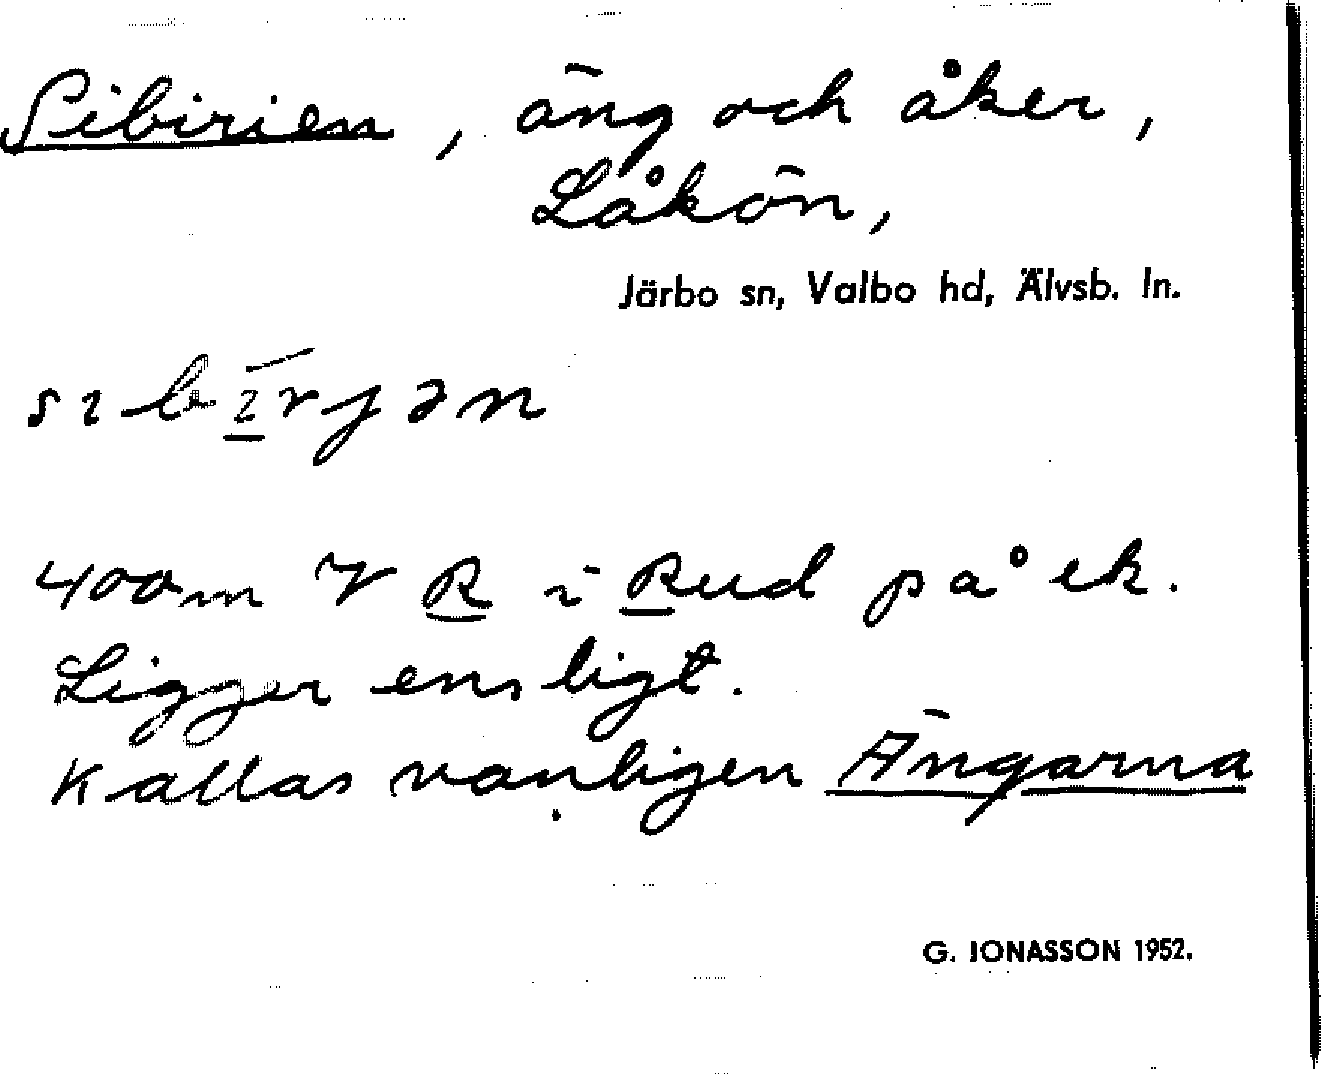 Sibirien, äng och åker,
Låkön,
Järbo sn, Valbo hd, Älvsb. ln.
sıbı́rjən
400 m V R i Rud på ek.
Ligger ensligt.
Kallas vanligen Ängarna
G. JONASSON 1952.